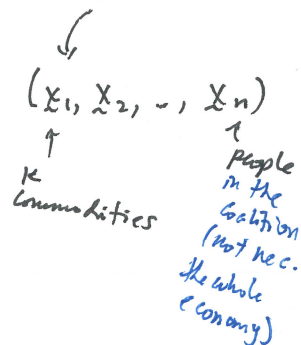 (x̰₁, x̰₂, .., x̰ₙ)
K
commodities
people
in the
coalition
(not nec.
the whole
economy)